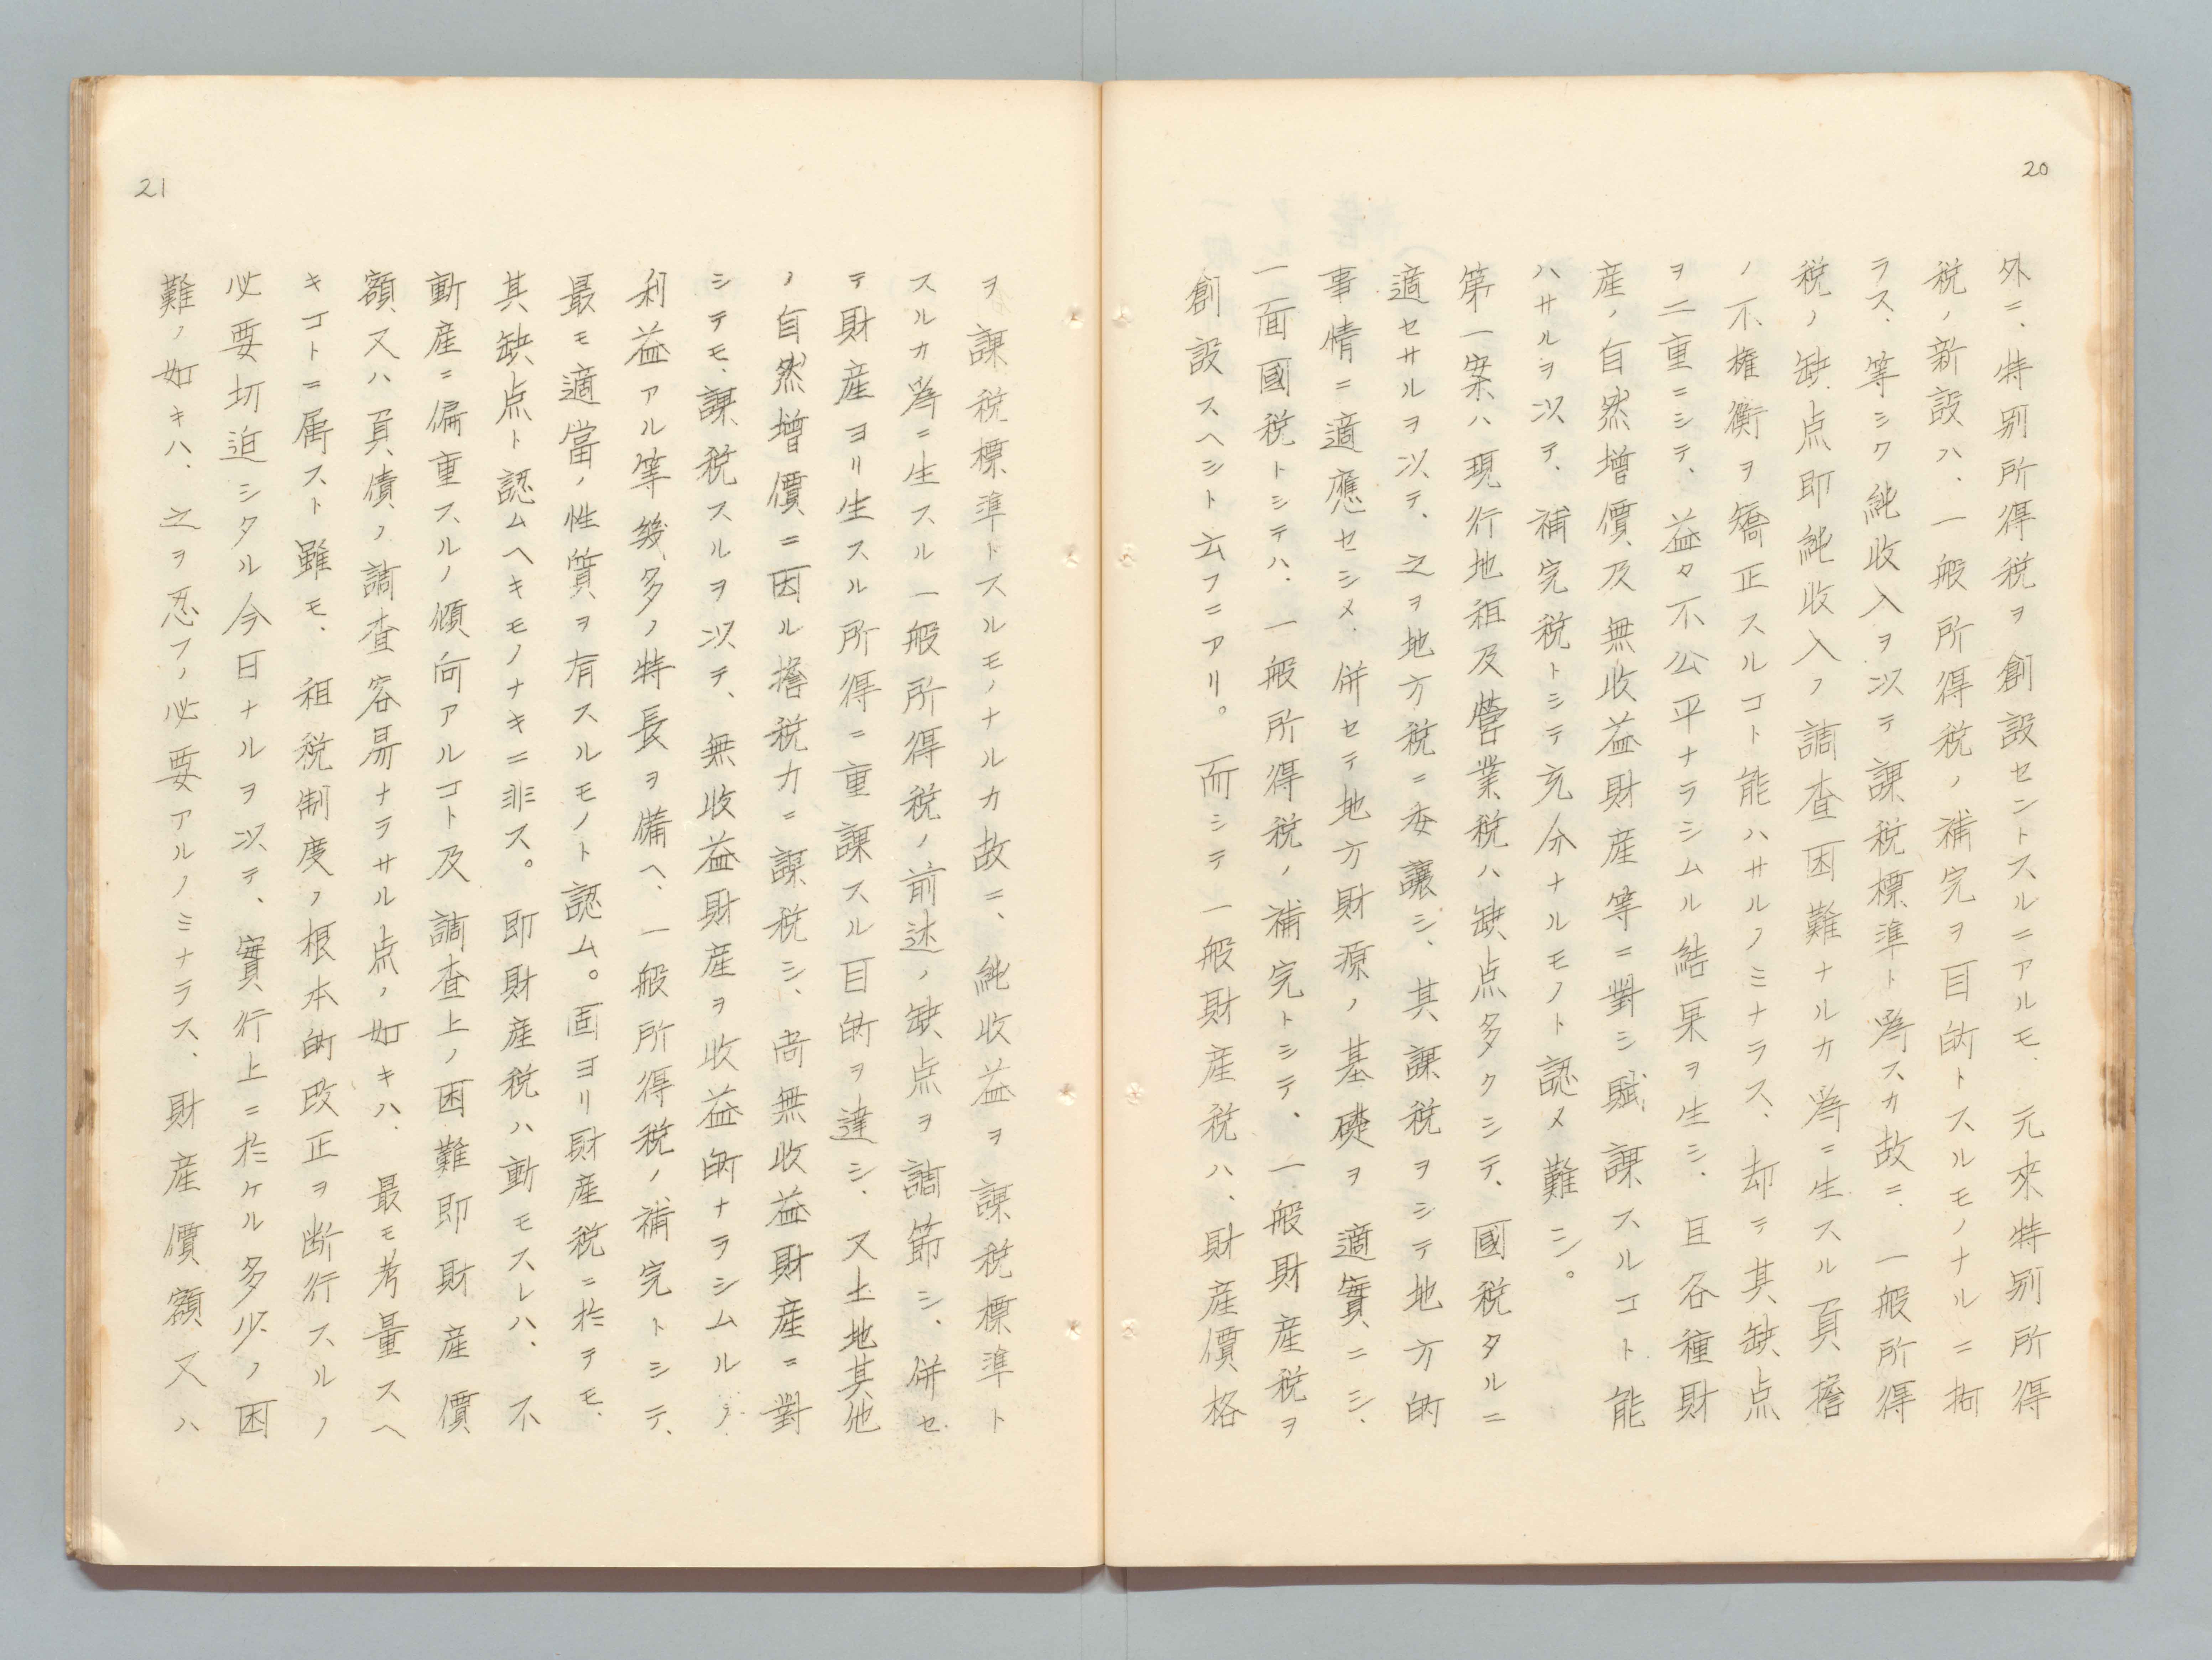 20
外ニ、特別所得税ヲ創設セントスルニアルモ、元來特別所得
税ノ新設ハ、一般所得税ノ補完ヲ目的トスルモノナルニ拘
ラス、等シク純收入ヲ以テ課税標準ト爲スカ故ニ、一般所得
税ノ缺点即純收入ノ調査困難ナルカ爲ニ生スル負擔
ノ不權衡ヲ矯正スルコト能ハサルノミナラス、却テ其缺点
ヲ二重ニシテ、益々不公平ナラシムル結果ヲ生シ、且各種財
産ノ自然增價及無收益財産等ニ對シ賦課スルコト能
ハサルヲ以テ、補完税トシテ充分ナルモノト認メ難シ。
第一案ハ現行地租及營業税ハ缺点多クシテ、國税タルニ
適セサルヲ以テ、之ヲ地方税ニ委讓シ、其課税ヲシテ地方的
事情ニ適應セシメ、併セテ地方財源ノ基礎ヲ適實ニシ、
一面國税トシテハ、一般所得税ノ補完トシテ、一般財産税ヲ
創設スヘシト云フニアリ。而シテ一般財産税ハ、財産價格
21
ヲ課税標準トスルモノナルカ故ニ、純收益ヲ課税標準ト
スルカ爲ニ生スル一般所得税ノ前述ノ缺点ヲ調節シ、併セ
テ財産ヨリ生スル所得ニ重課スル目的ヲ達シ、又土地其他
ノ自然增價ニ因ル擔税力ニ課税シ、尚無收益財産ニ對
シテモ、課税スルヲ以テ、無收益財産ヲ收益的ナラシムルノ
利益アル等幾多ノ特長ヲ備ヘ、一般所得税ノ補完トシテ、
最モ適當ノ性質ヲ有スルモノト認ム。固ヨリ財産税ニ於テモ、
其缺点ト認ムヘキモノナキニ非ス。即財産税ハ動モスレハ、不
動産ニ偏重スルノ傾向アルコト及調査上ノ困難即財産價
額又ハ負債ノ調査容易ナラサル点ノ如キハ、最モ考量スヘ
キコトニ属スト雖モ、租税制度ノ根本的改正ヲ断行スルノ
必要切迫シタル今日ナルヲ以テ、實行上ニ於ケル多少ノ困
難ノ如キハ、之ヲ忍フノ必要アルノミナラス、財産價額又ハ